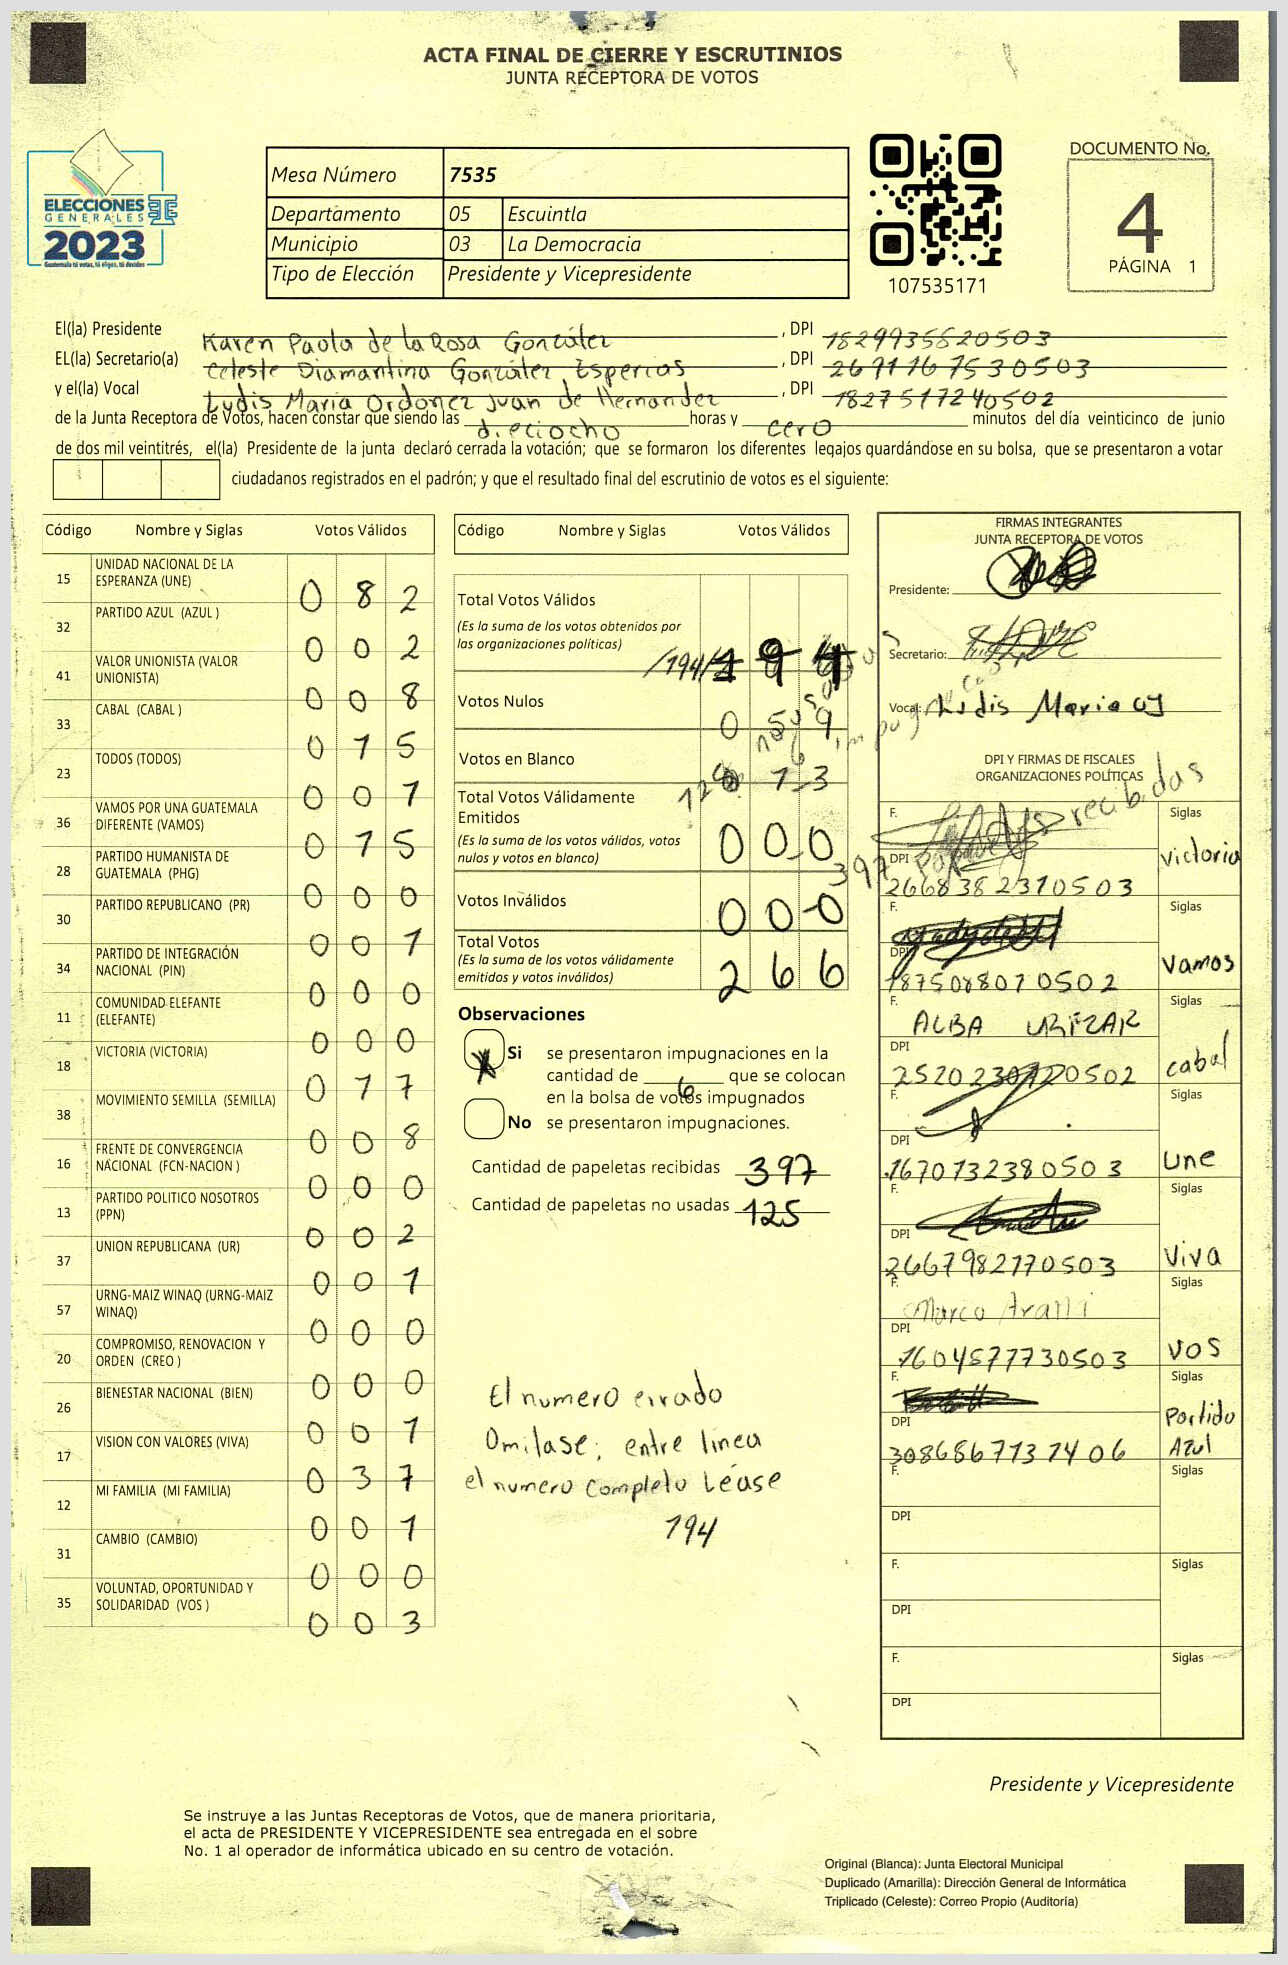 ACTA FINAL DE CIERRE Y ESCRUTINIOS
JUNTA RECEPTORA DE VOTOS
ELECCIONES
GENERALES
2023
Guatemala tú votas, tú eliges, tú decides
Mesa Número 7535
Departamento 05 Escuintla
Municipio 03 La Democracia
Tipo de Elección Presidente y Vicepresidente
107535171
DOCUMENTO No.
4
PÁGINA 1
El(la) Presidente Karen Paola de la Rosa González , DPI 1829935520503
EL(la) Secretario(a) Celeste Diamantina González Esperias , DPI 2691167530503
y el(la) Vocal Lydis Maria Ordoñez Juan de Hernandez , DPI 1827517240502
de la Junta Receptora de Votos, hacen constar que siendo las dieciocho horas y cero minutos del día veinticinco de junio
de dos mil veintitrés, el(la) Presidente de la junta declaró cerrada la votación; que se formaron los diferentes legajos quardándose en su bolsa, que se presentaron a votar
ciudadanos registrados en el padrón; y que el resultado final del escrutinio de votos es el siguiente:
Código Nombre y Siglas Votos Válidos
15 UNIDAD NACIONAL DE LA ESPERANZA (UNE) 0 8 2
32 PARTIDO AZUL (AZUL ) 0 0 2
41 VALOR UNIONISTA (VALOR UNIONISTA) 0 0 8
33 CABAL (CABAL ) 0 1 5
23 TODOS (TODOS) 0 0 1
36 VAMOS POR UNA GUATEMALA DIFERENTE (VAMOS) 0 1 5
28 PARTIDO HUMANISTA DE GUATEMALA (PHG) 0 0 0
30 PARTIDO REPUBLICANO (PR) 0 0 1
34 PARTIDO DE INTEGRACIÓN NACIONAL (PIN) 0 0 0
11 COMUNIDAD ELEFANTE (ELEFANTE) 0 0 0
18 VICTORIA (VICTORIA) 0 1 7
38 MOVIMIENTO SEMILLA (SEMILLA) 0 0 8
16 FRENTE DE CONVERGENCIA NACIONAL (FCN-NACION ) 0 0 0
13 PARTIDO POLITICO NOSOTROS (PPN) 0 0 2
37 UNION REPUBLICANA (UR) 0 0 1
57 URNG-MAIZ WINAQ (URNG-MAIZ WINAQ) 0 0 0
20 COMPROMISO, RENOVACION Y ORDEN (CREO ) 0 0 0
26 BIENESTAR NACIONAL (BIEN) 0 0 1
17 VISION CON VALORES (VIVA) 0 3 7
12 MI FAMILIA (MI FAMILIA) 0 0 1
31 CAMBIO (CAMBIO) 0 0 0
35 VOLUNTAD, OPORTUNIDAD Y SOLIDARIDAD (VOS ) 0 0 3
Código Nombre y Siglas Votos Válidos
Total Votos Válidos
(Es la suma de los votos obtenidos por
las organizaciones políticas)
/194/ 1 9 4
Votos Nulos 0 5 9
Votos en Blanco 1 3
Total Votos Válidamente
Emitidos
(Es la suma de los votos válidos, votos
nulos y votos en blanco)
0 0 0
Votos Inválidos 0 0 0
Total Votos
(Es la suma de los votos válidamente
emitidos y votos inválidos)
2 6 6
397 recibidas
Observaciones
Si se presentaron impugnaciones en la
cantidad de 6 que se colocan
en la bolsa de votos impugnados
No se presentaron impugnaciones.
Cantidad de papeletas recibidas 397
Cantidad de papeletas no usadas 125
El numero errado
Omilase; entre linea
el numero completo Léase
194
FIRMAS INTEGRANTES
JUNTA RECEPTORA DE VOTOS
Presidente:
Secretario:
Vocal: Lydis Maria OJ
DPI Y FIRMAS DE FISCALES
ORGANIZACIONES POLÍTICAS
F. Siglas
DPI victoria
2668382310503
F. Siglas
DPI Vamos
1875088070502
F. Siglas
ALBA URIZAR
DPI cabal
2520230720502
F. Siglas
DPI
1670132380503 Une
F. Siglas
DPI
2667982170503 Viva
F. Siglas
Marco
DPI
1604577730503 VOS
F. Siglas
DPI Partido
3086867131406 Azul
F. Siglas
DPI
F. Siglas
DPI
F. Siglas
DPI
Presidente y Vicepresidente
Se instruye a las Juntas Receptoras de Votos, que de manera prioritaria,
el acta de PRESIDENTE Y VICEPRESIDENTE sea entregada en el sobre
No. 1 al operador de informática ubicado en su centro de votación.
Original (Blanca): Junta Electoral Municipal
Duplicado (Amarilla): Dirección General de Informática
Triplicado (Celeste): Correo Propio (Auditoría)